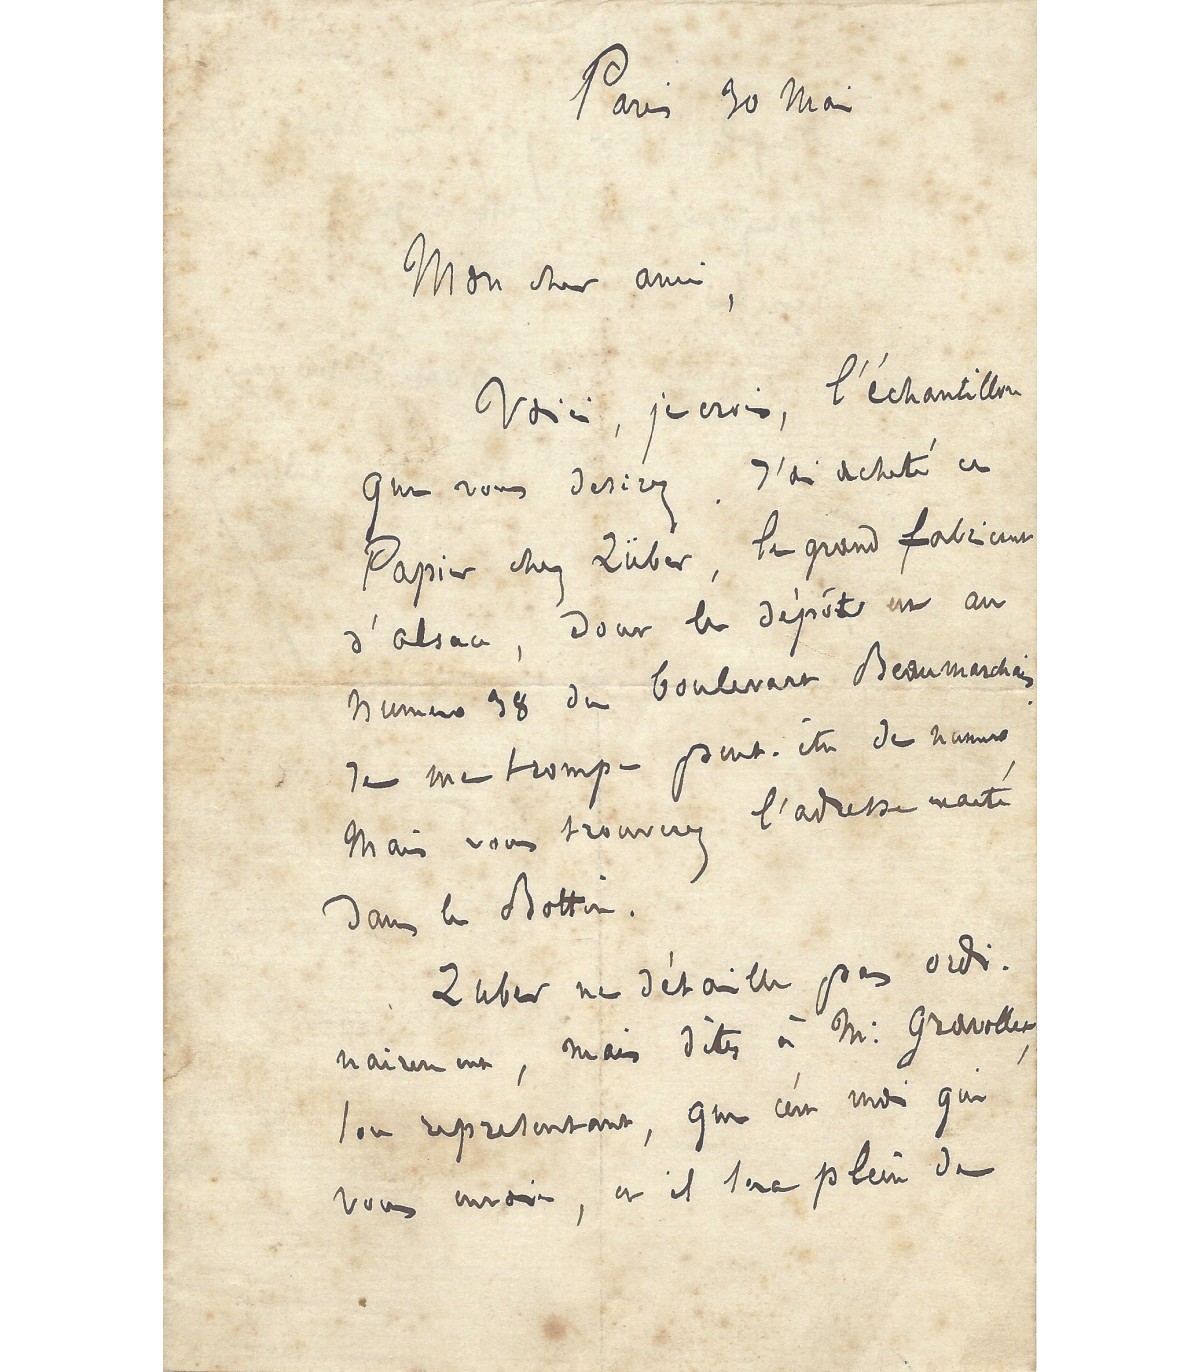 Paris 30 Mai
Mon cher ami,
Voici, je crois, l'échantillon
que vous désirez. J'ai acheté ce
Papier chez Züber, le grand fabricant
d'alsace, dont le dépôt est au
numero 38 du boulevart Beaumarchais.
Je me trompe peut-être de numero,
Mais vous trouverez l'adresse exacte
dans le Bottin.
Zuber ne détaille pas ordi-
nairement, mais dites à M: Gravollet,
son représentant, que c'est moi qui
vous envoie, et il sera plein de